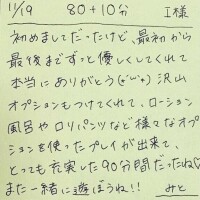 11/19 80+10分 I様
初めましてだったけど、最初から
最後までずっと優しくしてくれて
本当にありがとう(*ˊᵕˋ*)♡ 沢山
オプションもつけてくれて、ローション
風呂やロリパンツなど様々なオプ
ションを使ったプレイが出来て、
とっても充実した90分間だったね♡
また一緒に遊ぼうね!! みと